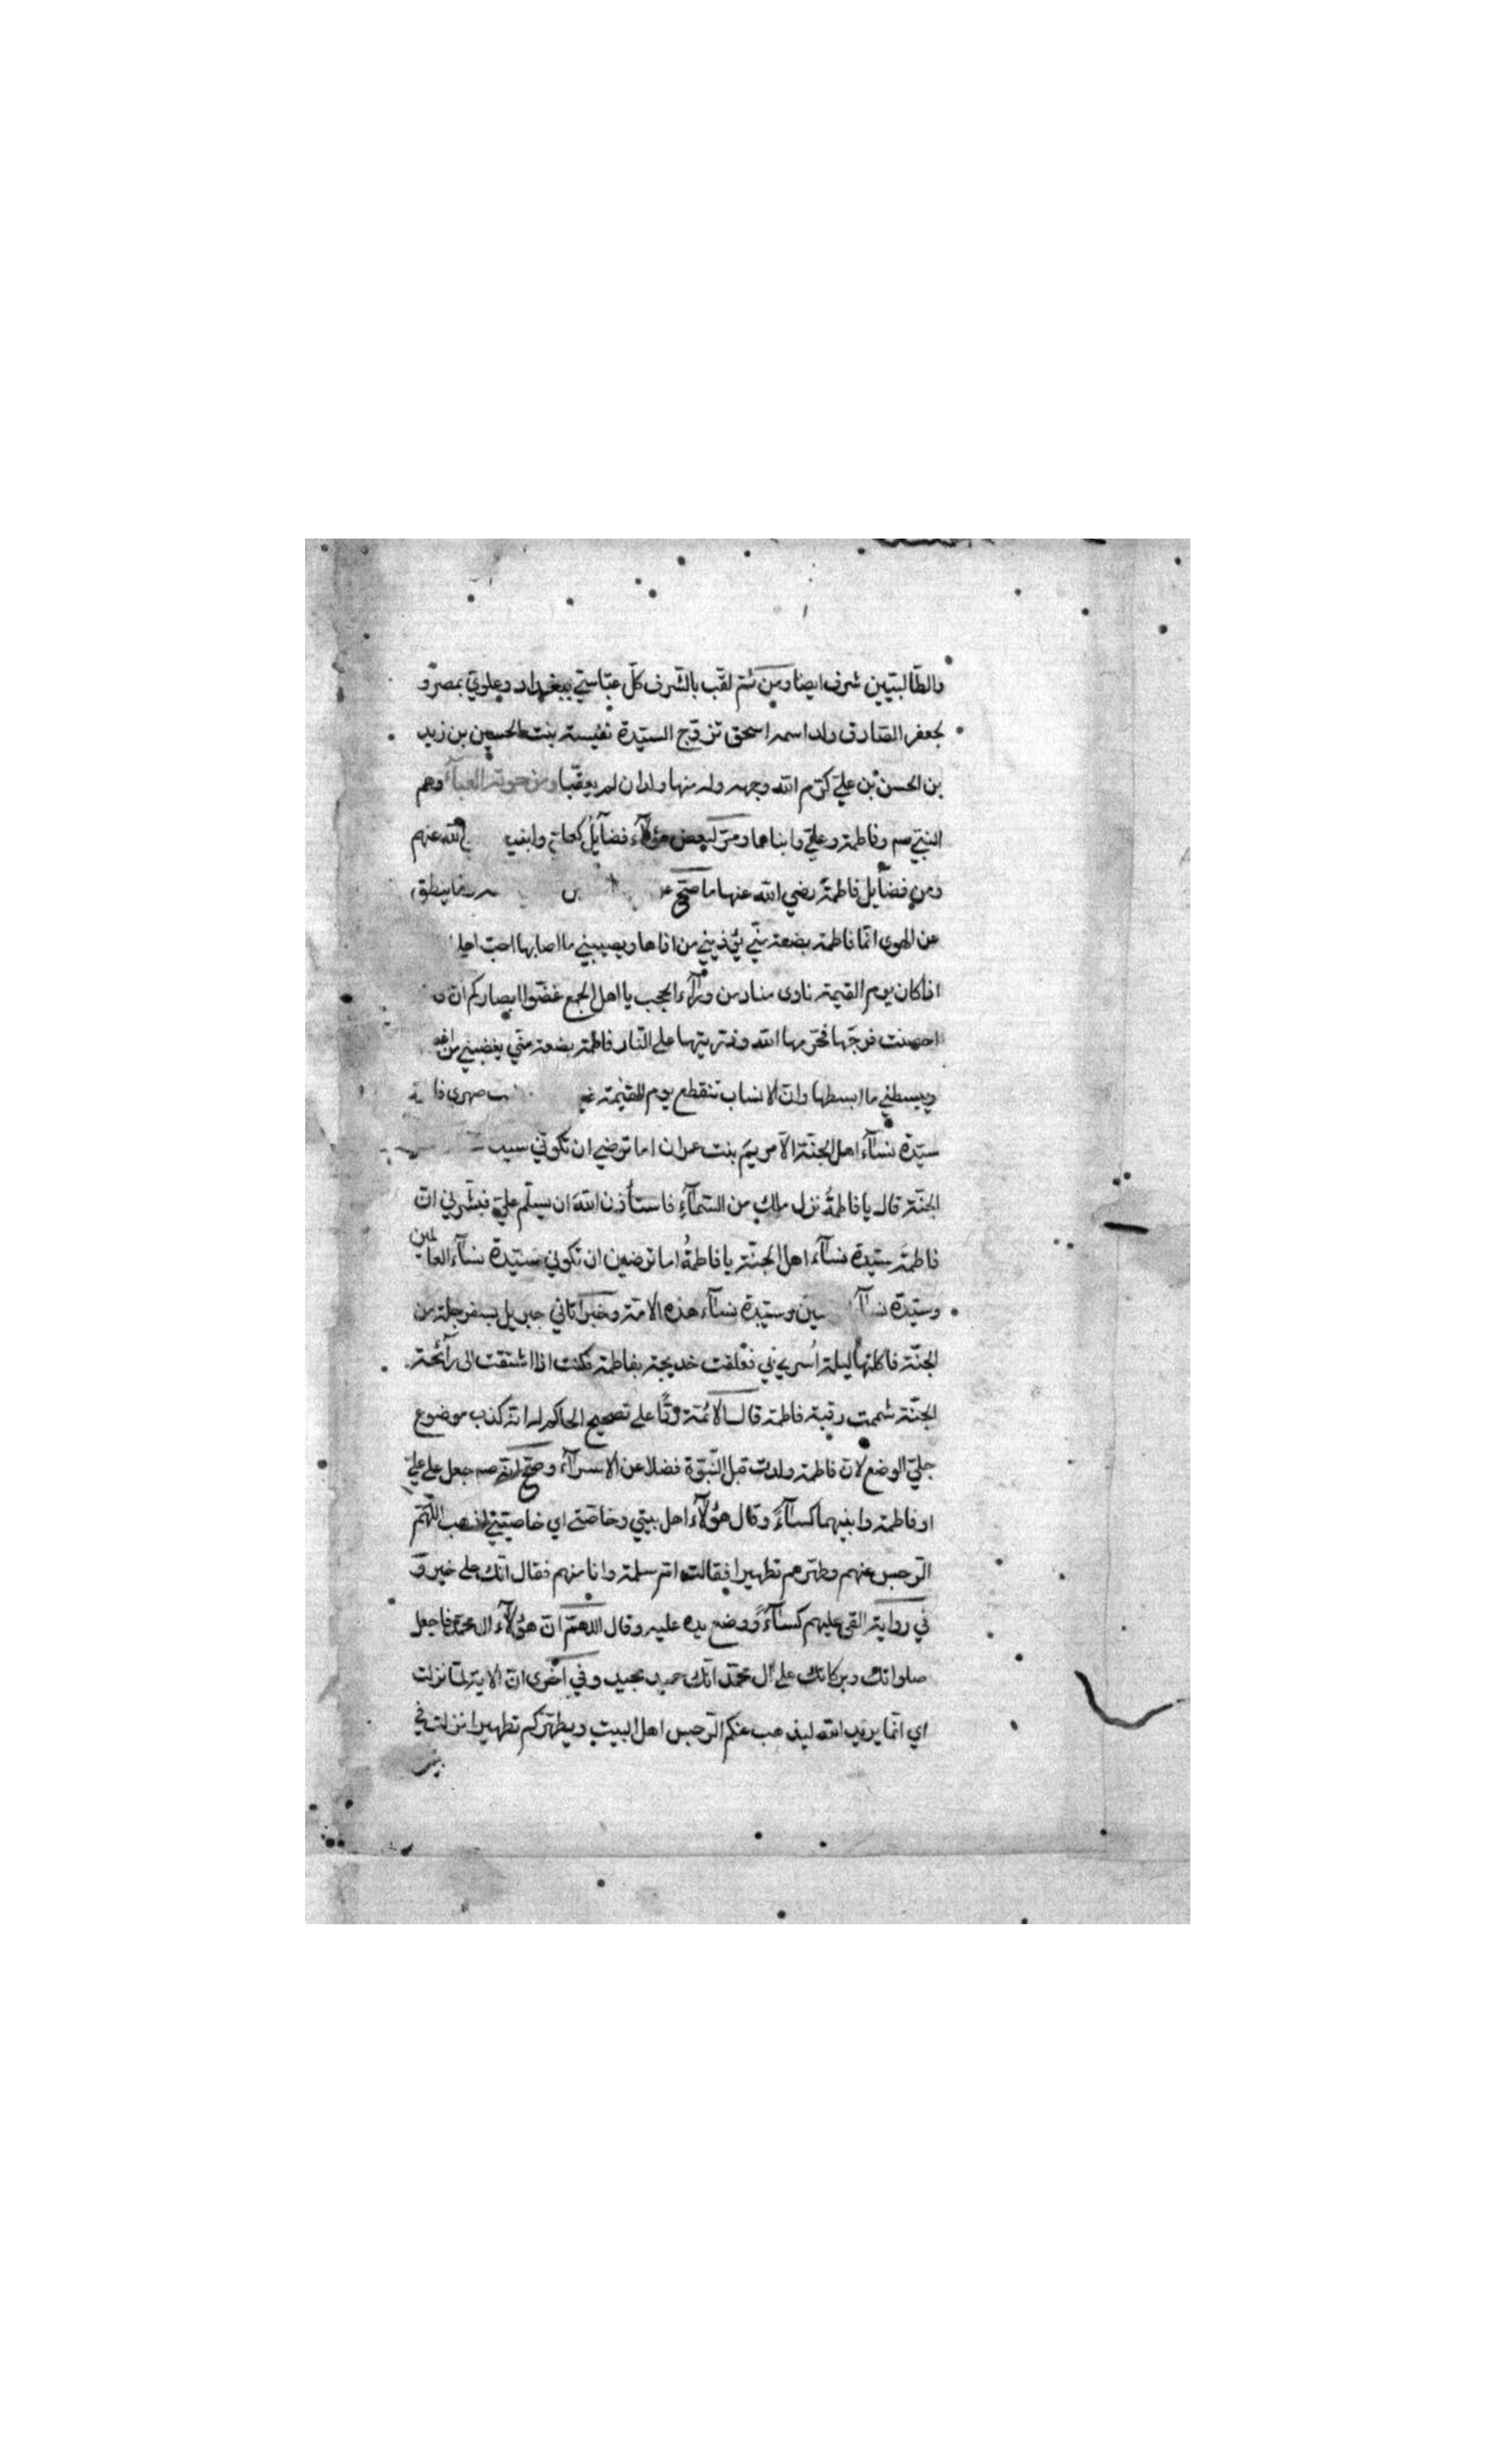 والطّالبيّين شرف ايضا ومن ثمّ لقّب بالشّرف كلّ عبّاسيّ ببغداد وعلويّ بمصر و
لجعفر الصّادق ولد اسمه اسحق تزوّج السيّدة نفيسة بنت الحسين بن زيد
بن الحسن بن عليّ كرّم الله وجهه وله منها ولدان لم يعقّبا ومن حوته العبآء وهم
النبيّ صم وفاطمة وعليّ وابناهما ومرّ لبعض هؤلآء فضآيل كعليّ وابنيه الله عنهم
ومن فضآيل فاطمة رضي الله عنها ما صحّ ما ينطق
عن الهوى انّما فاطمة بضعة منّي يؤذيني من اذاها ويصيبني ما اصابها احبّ اهل
اذا كان يوم القيمة نادى مناد من ورآء الحجب يا اهل الجمع غضّوا ابصاركم انّ
احصنت فرجها فحرّمها الله وذريتها على النّار فاطمة بضعة منّي يغضبني من
ويبسطني ما ابسطها وانّ الانساب تنقطع يوم القيمة صهرى
سيّدة نسآء اهل الجنّة الاّ مريم بنت عمران اما ترضي ان تكوني
الجنّة قال يا فاطمة نزل ملك من السّمآء فاستأذن الله ان يسلّم عليّ فبشّرني انّ
فاطمة سيّدة نسآء اهل الجنّة يا فاطمة اما ترضين ان تكوني سيّدة نسآء العالمين
وسيّدة وسيّدة نسآء هذه الامّة وخبر اتاني جبريل بسفرجلة من
الجنّة فاكلتها ليلة اسري بي فعلقت خديجة بفاطمة فكنت اذا اشتقت الى رآئحة
الجنّة شممت رقبة فاطمة قال الائمّة ردّا على تصحيح الحاكم له انّه كذب موضوع
جليّ الوضع لانّ فاطمة ولدت قبل النّبوّة فضلا عن الاسرآء وصحّ انّه صم جعل على عليّ
او فاطمة وابنيهما كسآءً وقال هؤلآء اهل بيتي وخاصّتي اي خاصيتي اذهب اللّهمّ
الرّجس عنهم وطهّرهم تطهيرا فقالت امّ سلمة وانا منهم فقال انّك على خير و
في رواية القى عليهم كسآءً ووضع يده عليه وقال اللهمّ انّ هؤلآء ال محمّد فاجعل
صلواتك وبركاتك على ال محمّد انّك حميد مجيد وفي اخرى انّ الاية لمّا نزلت
اي انّما يريد الله ليذهب عنكم الرّجس اهل البيت ويطهّركم تطهيرا نزلت في